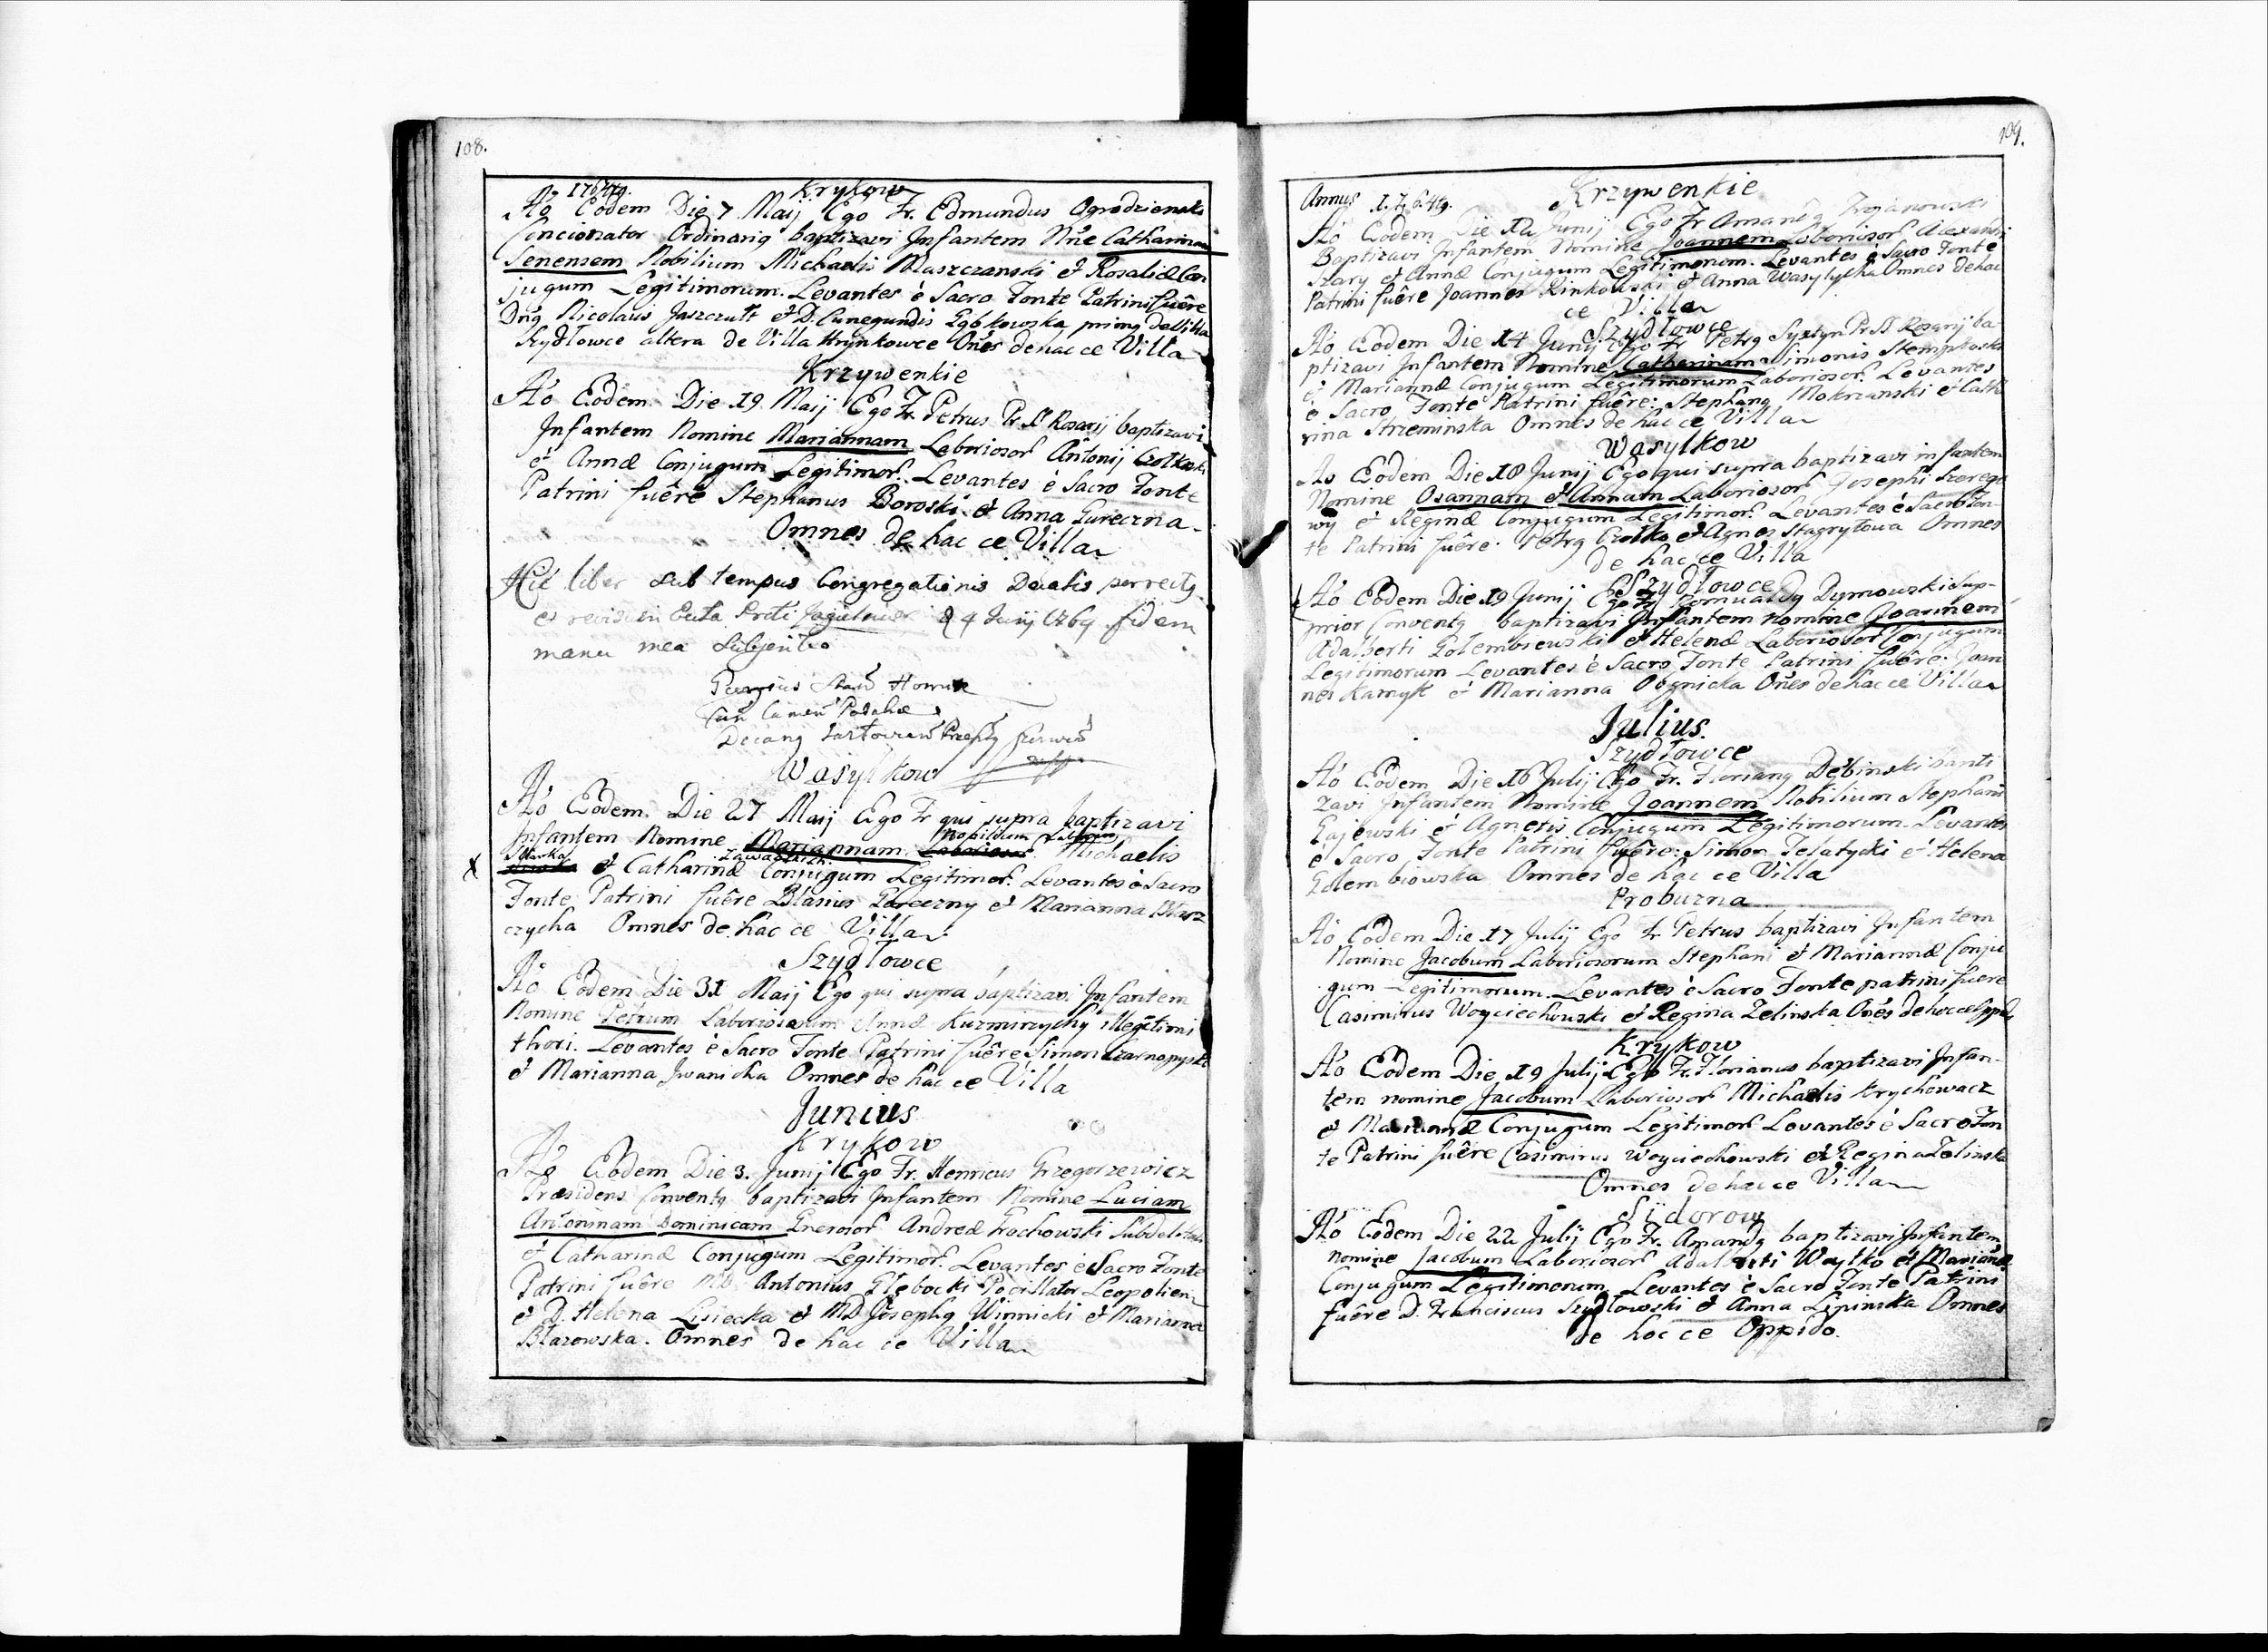 108.
1764tg. Krykow
Aō Eodem Die 7 Maij Ego Fr. Edmundus Ogrodzienski
Concionator Ordinarig baptizavi Infantem Nne Catharinam
Senensem Nobilium Michaelis Maszczanski et Rosaliæ Con
jugum Legitimorum. Levantes è Sacro Fonte Patrini fuêre
Dng Nicolaus Jaszczułt et D. Cunegundis primg de Villa
Szydłowce altera de Villa Hrynkowce Oñes de hac ce Villa
Krzywenkie
Aō Eodem Die 19 Maij Ego Fr. Petrus Pr SS Rosarij baptizavi
Infantem Nomine Mariannam Laborioso4 Antonij
et Annæ Conjugum Legitimor. Levantes è Sacro Fonte
Patrini fuêre Stephanus Boroski et Anna Gureczna.
Omnes de hac ce Villa
Hic liber sub tempus Congregationis Decalis perrectg
et revisus in 24 Junij 1764 fidem
manu mea Subscribo
Decang
Wasylkow
Aō Eodem Die 27 Maij Ego Fr qui supra baptizavi
Infantem Nomine Mariannam Nobilium Michaelis
et Catharinæ Conjugum Legitimor. Levantes è Sacro
Fonte Patrini fuêre Blasius Gureczny et Marianna Błasz
czycha Omnes de hac ce Villa
Szydłowce
Aō Eodem Die 31 Maij Ego qui supra baptizavi Infantem
Nomine Petrum Laboriosarum Annæ Kuzminzychy illegitimi
thori. Levantes è Sacro Fonte Patrini fuêre Simon Czarnopyski
et Marianna Jwanicka Omnes de hac ce Villa
Junius
Krykow
Aō Eodem Die 3. Junij Ego Fr. Henricus Grzegorzewicz
Præsidens Conventg baptizavi Infantem Nomine Luciam
Antoninam Dominicam Generosor Andreæ Grochowski
et Catharinæ Conjugum Legitimor. Levantes è Sacro Fonte
Patrini fuêre MD. Antonius Głębocki Pocillator Leopolien
et D. Helena Lisiecka et MD Josephg Winnicki et Marianna
Błazowska. Omnes de hac ce Villa
109.
Annus 1764tg. Krzywenkie
Aō Eodem Die 12 Junij Ego Fr Amandg Trojanowski
Baptizavi Infantem Nomine Joannem Laboriosor Alexandri
Szary et Annæ Conjugum Legitimorum. Levantes è Sacro Fonte
Patrini fuêre Joannes Rinkowski et Anna Wasylycha Omnes de hac
ce Villa
Szydłowce
Aō Eodem Die 14 Junij Ego Fr Petrg Syxtyn Pr SS Rosarij ba
ptizavi Infantem Nomine Catharinam Simonis Stempkoski
et Mariannæ Conjugum Legitimorum Laboriosor. Levantes
è Sacro Fonte Patrini fuêre: Stephang Mokrzanski et Catha
rina Strzeminska Omnes de hac ce Villa
Wasylkow
Ao Eodem Die 18 Junij Ego qui supra baptizavi infantem
Nomine Osannam et Annam Laboriosor Josephi Szerego
wy et Reginæ Conjugum Legitimor. Levantes è Sacro Fon-
te Patrini fuêre Petrg Czolko et Agnes Omnes
de hac ce Villa
Szydłowce
Aō Eodem Die 19 Junij Ego Fr Romualdg Dymowski Sup-
prior Conventg baptizavi Infantem nomine Joannem
Adalberti Golembiewski et Helenæ Laboriosor Conjugum
Legitimorum Levantes è Sacro Fonte Patrini fuêre. Joan
nes Kamyk et Marianna Oñes de hac ce Villa
Julius.
Szydłowce
Aō Eodem Die 16 Julij Ego Fr. Floriang Dębinski bapti
zavi Infantem Nomine Joannem Nobilium Stephani
Gajewski et Agnetis Conjugum Legitimorum. Levantes
è Sacro Fonte Patrini fuêre: Simon Telatycki et Helena
Golembiowska Omnes de hac ce Villa
Probuzna
Aō Eodem Die 17 Julij Ego Fr Petrus baptizavi Infantem
Nomine Jacobum Laboriosorum Stephani et Mariannæ Conju
gum Legitimorum. Levantes è Sacro Fonte patrini fuere
Casimirus Woyciechowski et Regina Zelinska Oñes de hoc ce Oppido
Krykow
Aō Eodem Die 19 Julij Ego Fr. Florianus baptizavi Infan-
tem nomine Jacobum Laboriosor Michaelis Krychowacz
et Mariannæ Conjugum Legitimor Levantes è Sacro Fon
te Patrini fuêre Casimirus Woyciechowski et Regina Zelinska
Omnes de hac ce Villa
Sidorow
Aō Eodem Die 22 Julij Ego Fr. Amandg baptizavi Infantem
nomine Jacobum Laboriosor Adalberti Woytko et Mariañæ
Conjugum Legitimorum Levantes è Sacro Fonte Patrini
fuêre D. Franciscus Szydłowski et Anna Lipinska Omnes
de hoc ce Oppido.